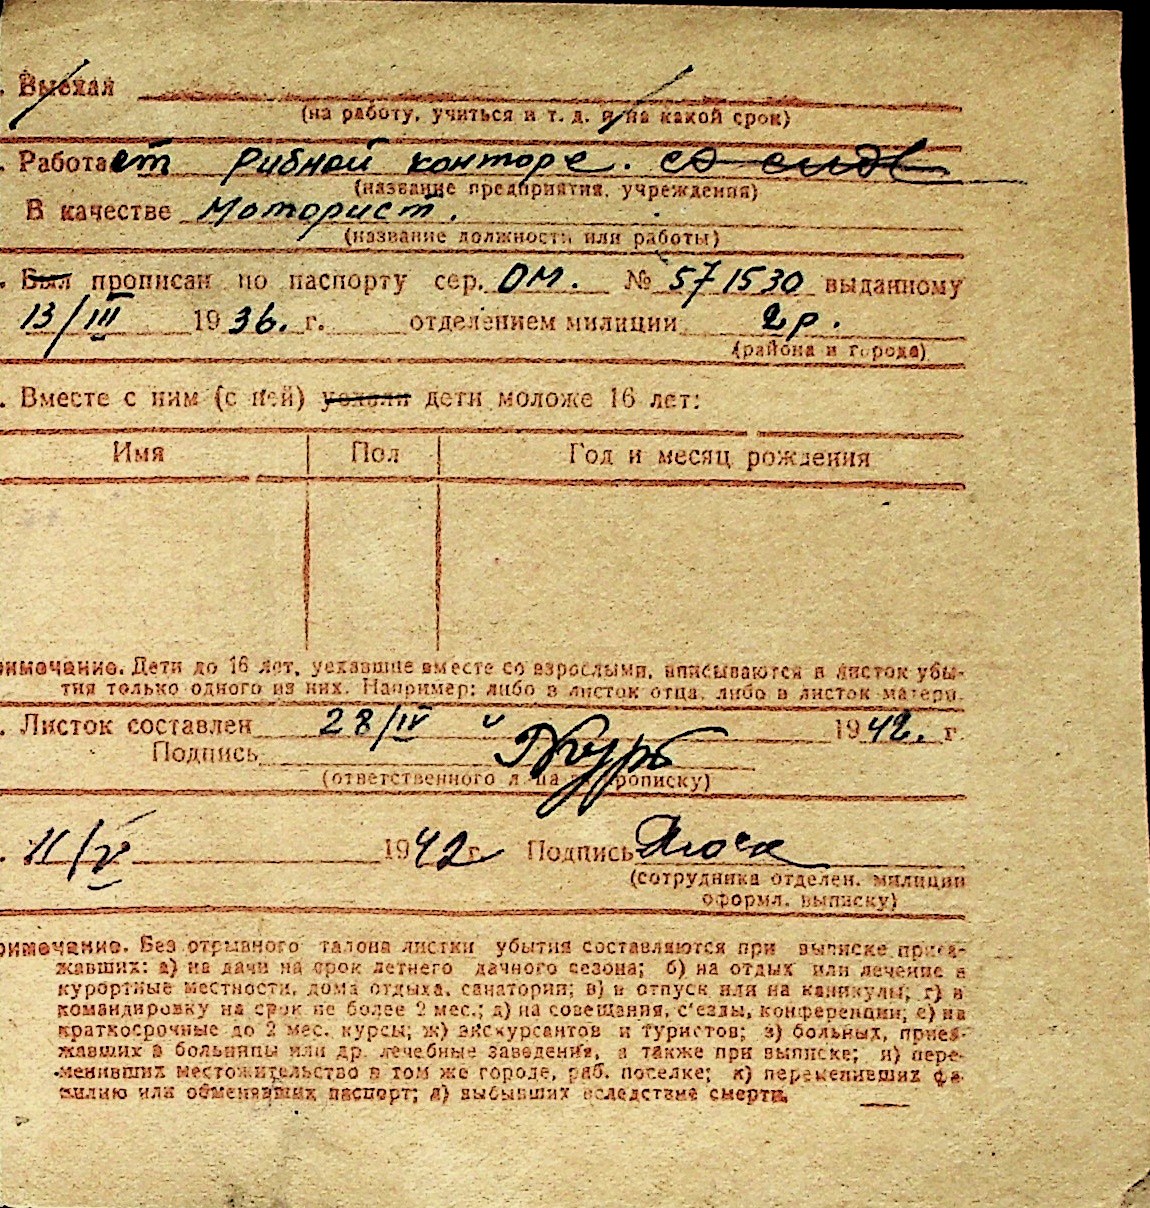 . Выехал
(на работу, учиться и т. д. и на какой срок)
. Работает Рибной конторе.
(название предприятия, учреждения)
В качестве Моторист.
(название должности или работы)
. Был прописан по паспорту сер. ДМ. № 571530 выданному
13/III 1936. г. отделением милиции 2 р.
(района и города)
. Вместе с ним (с ней) уехали дети моложе 16 лет:
Имя Пол Год и месяц рождения
римечание. Дети до 16 лет, уехавшие вместе со взрослыми, вписываются в листок убы-
тия только одного из них. Например: либо в листок отца, либо в листок матери.
. Листок составлен 28/IV 1942. г.
Подпись
(ответственного лица за прописку)
. 11/V 1942 г. Подпись
(сотрудника отделен. милиции
оформл. выписку)
римечание. Без отрывного талона листки убытия составляются при выписке приез-
жавших: а) на дачи на срок летнего дачного сезона; б) на отдых или лечение в
курортные местности, дома отдыха, санатории; в) в отпуск или на каникулы; г) в
командировку на срок не более 2 мес.; д) на совещания, с'езды, конференции; е) на
краткосрочные до 2 мес. курсы; ж) экскурсантов и туристов; з) больных, приез-
жавших в больницы или др. лечебные заведения, а также при выписке; и) пере-
менивших местожительство в том же городе, раб. поселке; к) переменивших фа-
милию или обменявших паспорт; л) выбывших вследствие смерти.